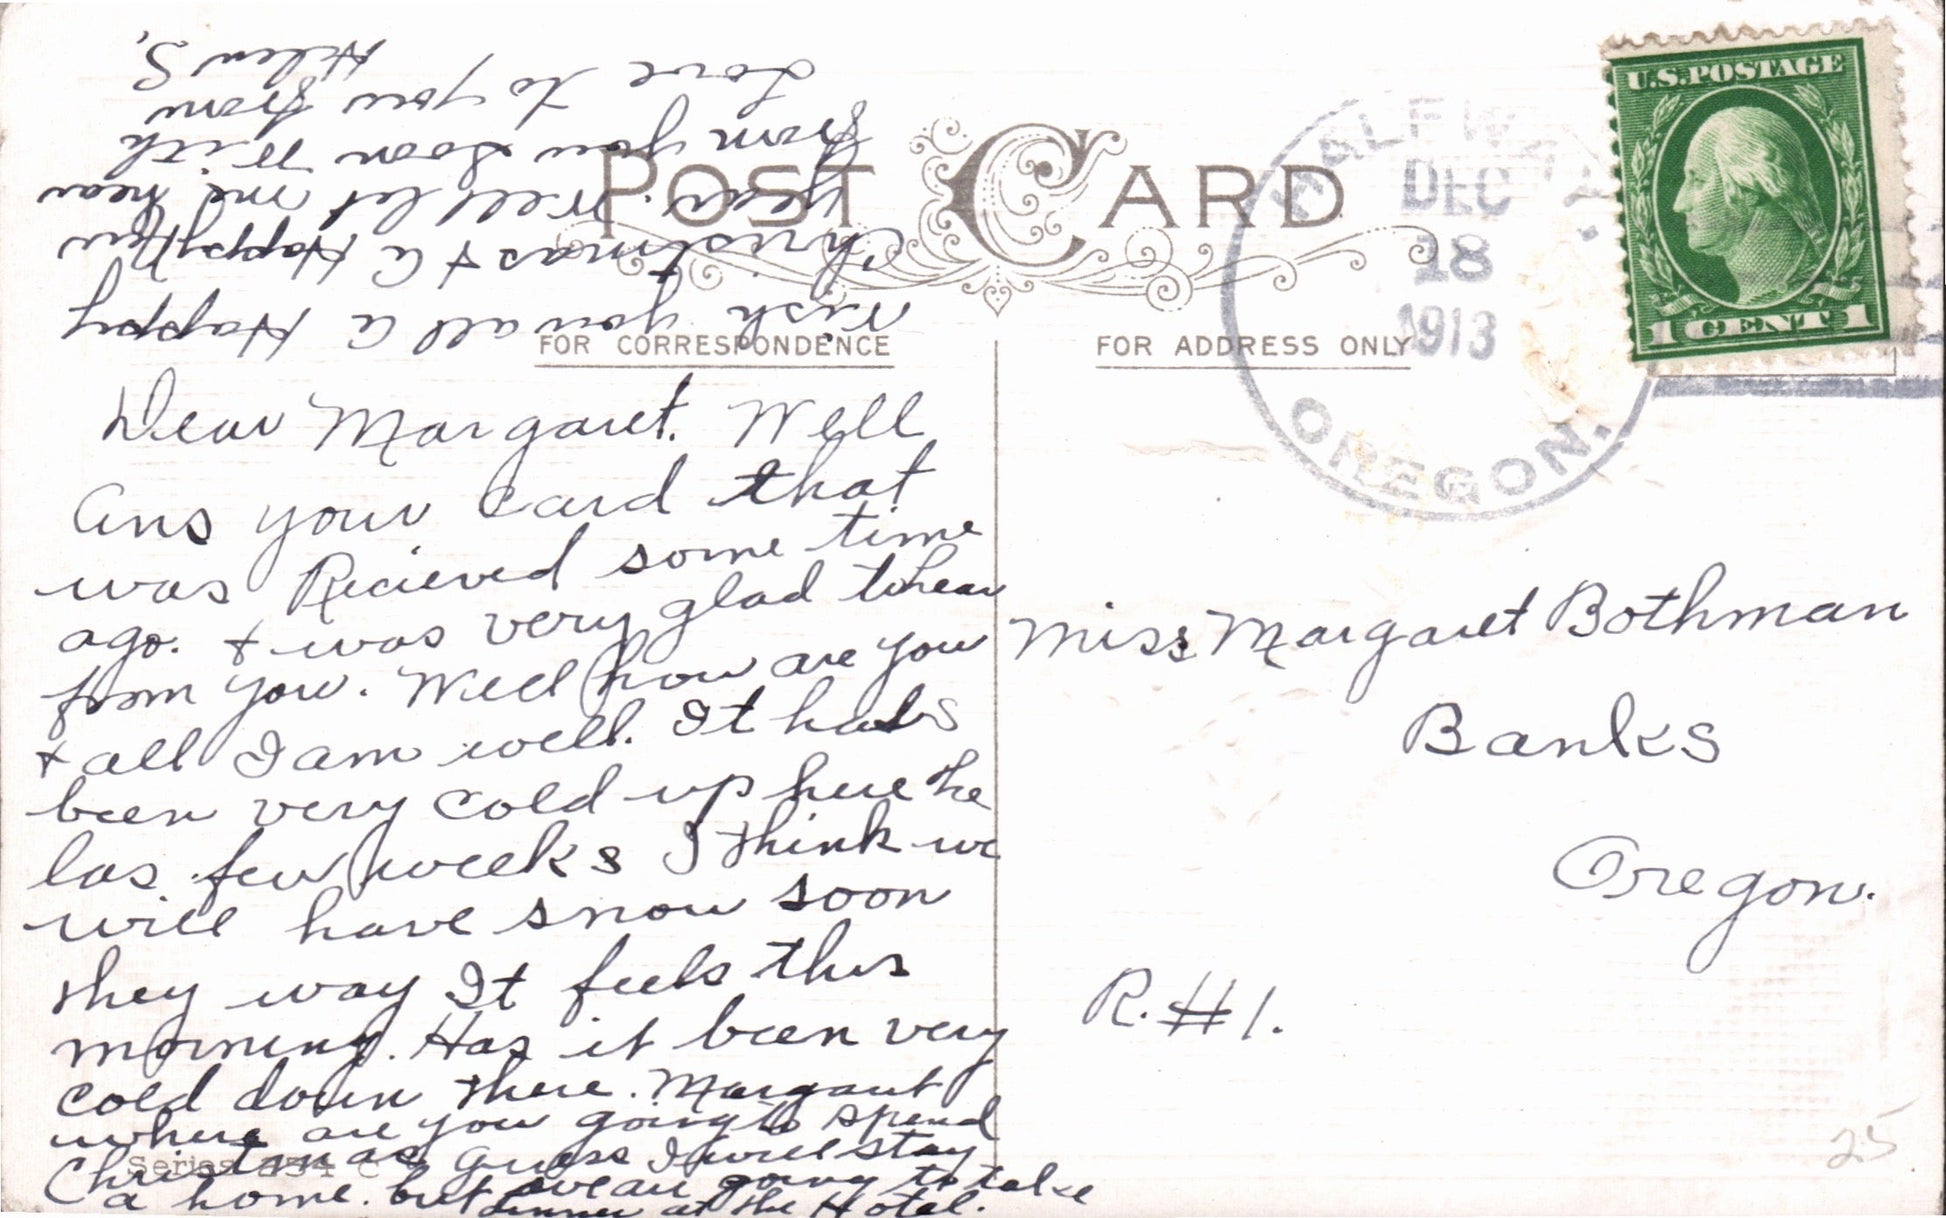 POST CARD
FOR CORRESPONDENCE
FOR ADDRESS ONLY
U.S. POSTAGE
1 CENT 1
HALFWAY
DEC
18
1913
OREGON.
Dear Margaret. Well
Ans your Card that
was Recieved some time
ago. + was very glad to hear
from you. Well how are you
+ all I am well. It has
been very cold up here the
las few weeks I think we
will have snow soon
they way It feels this
morning. Has it been very
cold down there. Margaret
where are you going to spend
Christmas guess I will stay
a home. but we are going to take
dinner at the Hotel.
Wish you all A Happy
Christmas + A Happy New
Year. Well let me hear
from you soon With
Love to you from
Helen S,
Miss Margaret Bothman
Banks
Oregon.
R. #1.
Series C
25